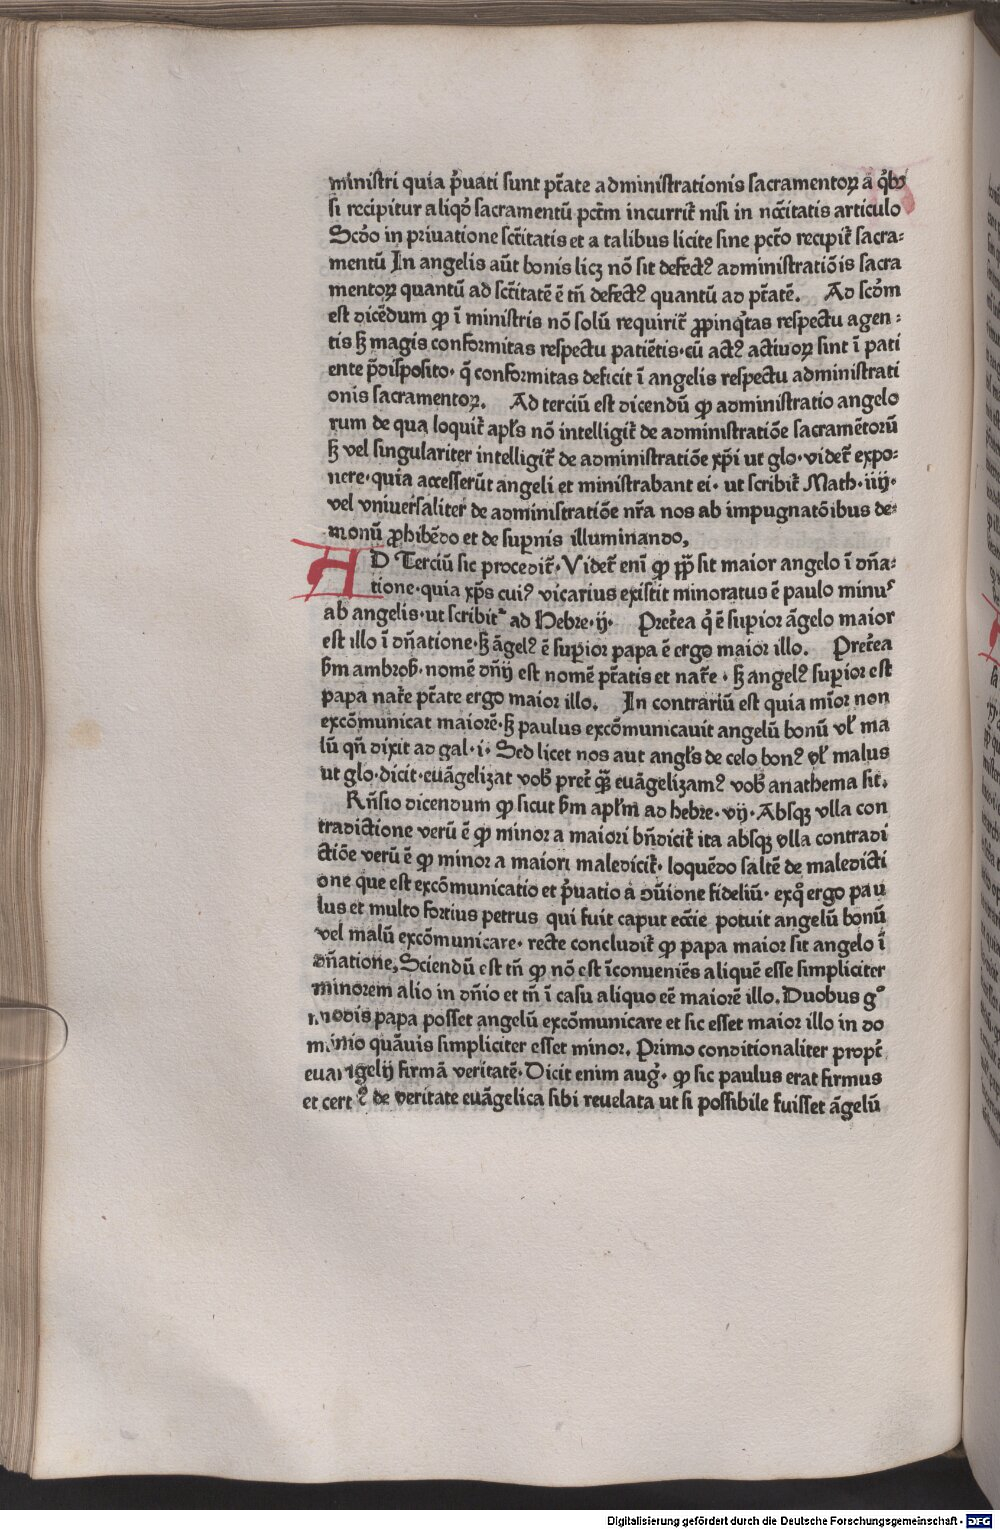 ministri quia p̄uati sunt ptāte administrationis sacramentoꝝ a q̇bꝰ
si recipitur aliqd̄ sacramentū pctm̄ incurrit̄ nisi in nccītatis articulo
Scdo in priuatione sctītatis et a talibus licite sine pctō recipit̄ sacra-
mentū In angelis aūt bonis licꝫ nō sit defectꝰ administratiōis sacra
mentoꝝ quantū ad sctītatē ē tn̄ defectꝰ quantū ad ptātē. Ad scdm̄
est dicēdum ꝙ ī ministris nō solū requirit̄ ꝓpinq̇tas respectu agen-
tis sꝫ magis conformitas respectu patiētis·cū actꝰ actiuoꝝ sint ī pati
ente p̄disposito· q̄ conformitas deficit ī angelis respectu administrati
onis sacramentoꝝ. Ad terciū est dicendū ꝙ administratio angelo
rum de qua loquit̄ apl̄s nō intelligit̄ de administratiōe sacramētorū
sꝫ vel singulariter intelligit̄ de administratiōe xp̄i ut glo·videt̄ expo-
nere·quia accesserūt angeli et ministrabant ei· ut scribit̄ Math·iiij·
vel vniuersaliter de administratiōe nr̄a nos ab impugnatōibus de-
monū ꝓhibēdo et de suꝑnis illuminando,
AD Terciū sic procedit̄·Videt̄ enī ꝙ pp̄ sit maior angelo ī dn̄a-
tione·quia xp̄s cuiꝰ vicarius existit minoratus ē paulo minuˢ
ab angelis·ut scribit̄ ad Hebre·ij· Pret̄ea q̇ ē suꝑior āgelo maior
est illo ī dn̄atione·sꝫ āgelꝰ ē suꝑior papa ē ergo maior illo. Pret̄ea
ẜm ambroẜ·nomē dn̄ij est nomē ptātis et nat̄e · sꝫ angelꝰ suꝑior est
papa nat̄e ptāte ergo maior illo. In contrariū est quia mīor non
excōmunicat maiorē·sꝫ paulus excōmunicauit angelū bonū vl̄ ma
lū qn̄ dixit ad gal·i· Sed licet nos aut angl̄s de celo bonꝰ vl̄ malus
ut glo·dicit·euāgelizat vob̄ pret̄ q̄ꝫ euāgelizamꝰ vob̄ anathema sit.
Rn̄sio dicendum ꝙ sicut ẜm apl̄m ad hebre·vij·Absqꝫ vlla con
tradictione verū ē ꝙ minor a maiori bn̄dicit̄ ita absqꝫ vlla contradi
ctiōe verū ē ꝙ minor a maiori maledicit̄· loquēdo saltē de maledicti
one que est excōmunicatio et p̄uatio a ꝯuīone fideliū· exq̇ ergo pau
lus et multo fortius petrus qui fuit caput ecc̄ie potuit angelū bonū
vel malū excōmunicare· recte concludit̄ ꝙ papa maior sit angelo ī
dn̄atione,Sciendū est tn̄ ꝙ nō est īconueniēs aliquē esse simpliciter
minorem alio in dn̄io et tn̄ ī casu aliquo eē maiorē illo. Duobus gᵒ
modis papa posset angelū excōmunicare et sic esset maior illo in do
minio quāuis simpliciter esset minor. Primo conditionaliter propt̄
euangelij firmā veritatē·Dicit enim aug̣· ꝙ sic paulus erat firmus
et certꝰ de veritate euāgelica sibi reuelata ut si possibile fuisset āgelū
Digitalisierung gefördert durch die Deutsche Forschungsgemeinschaft - DFG